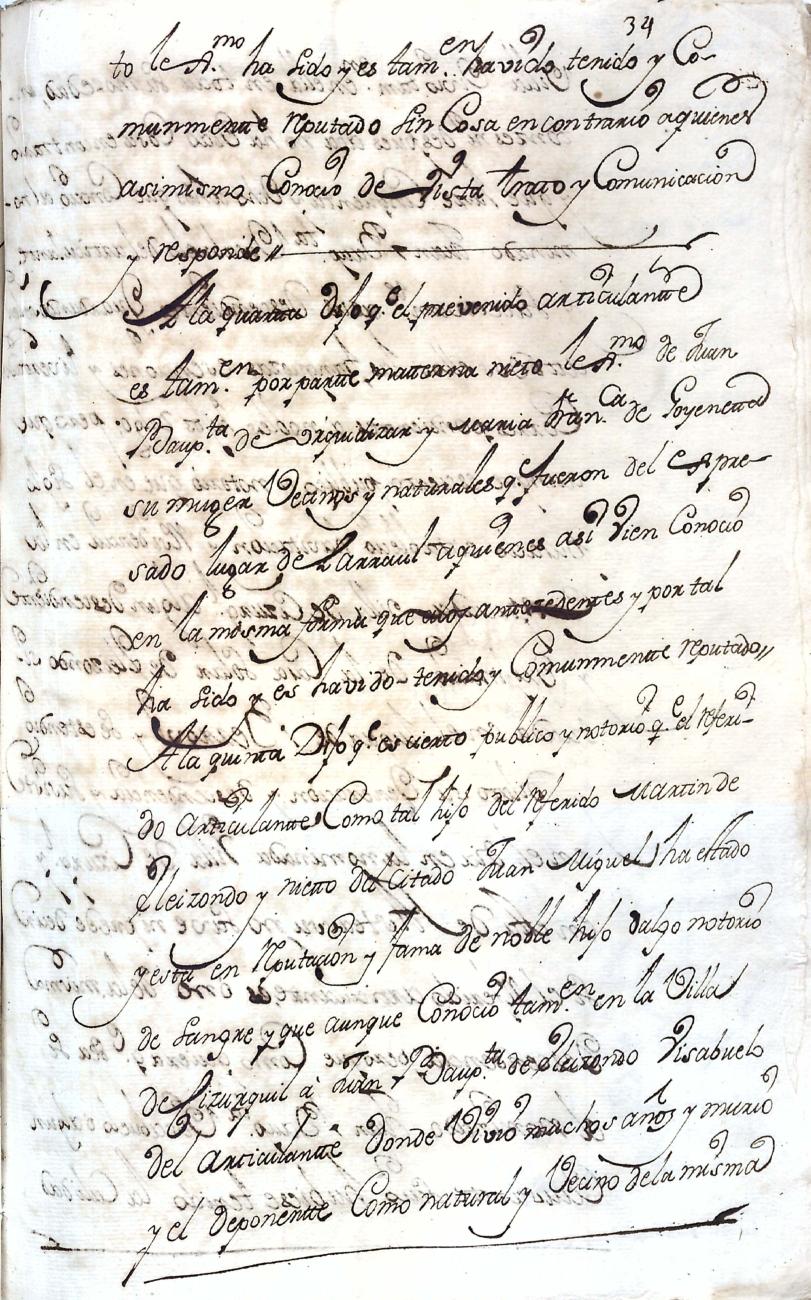 34
to lex.mo ha sido y es tam.en havido tenido y Co-
munmente reputado sin Cosa en contrario a quienes
asimismo Conocio de vista trato y Comunicacion
y responde //
A la quarta Dijo q.e el prevenido articulante
es tam.en por parte materna nieto lex.mo de Juan
Baup.ta de Urquidizar y Maria Fran.ca de Goyenetto
su muger Vecinos y naturales q.e fueron del expre-
sado lugar de Larraul a quienes asi vien Conocio
en la misma forma que a los antecedentes y por tal
ha sido y es havido tenido y Comunmente reputado //
A la quinta Dijo q.e es cierto publico y notorio q.e el referi-
do Articulante Como tal hijo del referido Martin de
Eleizondo y nieto del Citado Juan Miguel ha estado
y esta en Reputacion y fama de noble hijo dalgo notorio
de sangre y que aunque Conocio tam.en en la Villa
de Cizurquil à Juan Baup.ta de Eleizondo Visabuelo
del Articulante donde Vivio muchos años y murio
y el deponente Como natural y Vecino de la misma